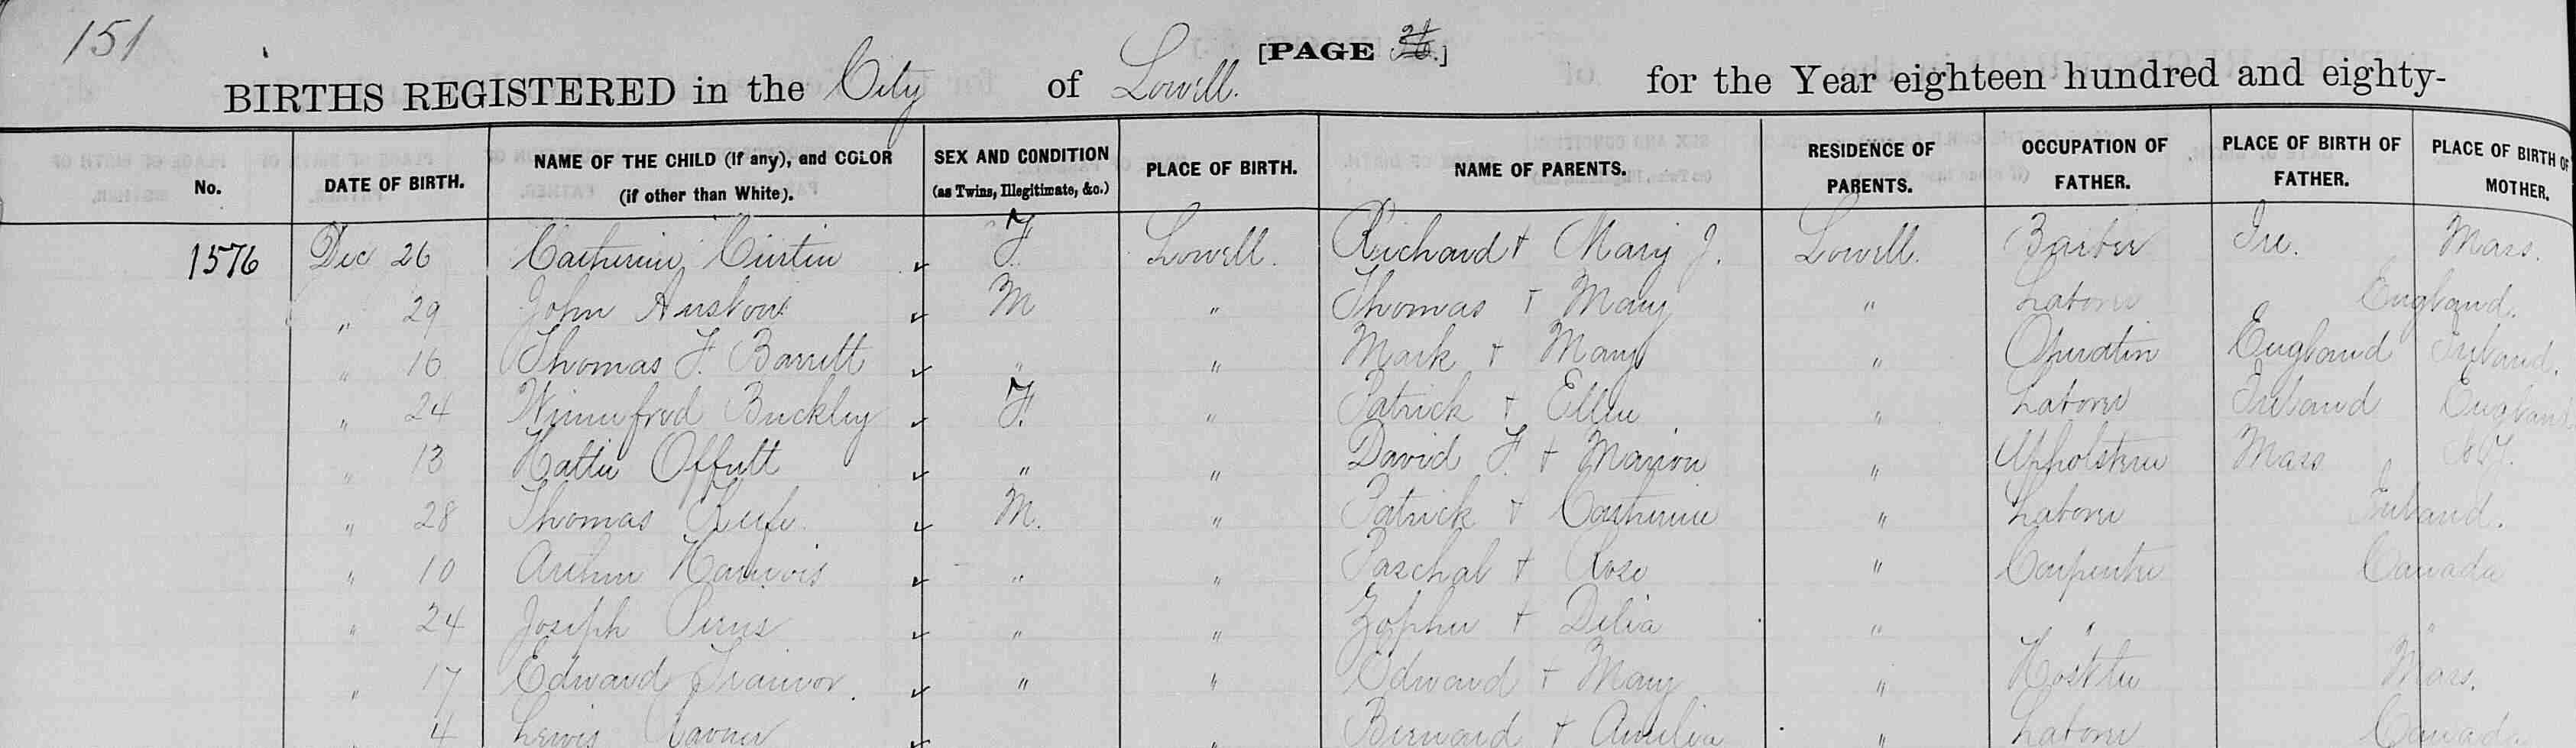 151
[PAGE 36.]
BIRTHS REGISTERED in the City of Lowell. for the Year eighteen hundred and eighty-
No. DATE OF BIRTH. NAME OF THE CHILD (if any), and COLOR (if other than White). SEX AND CONDITION (as Twins, Illegitimate, &c.) PLACE OF BIRTH. NAME OF PARENTS. RESIDENCE OF PARENTS. OCCUPATION OF FATHER. PLACE OF BIRTH OF FATHER. PLACE OF BIRTH OF MOTHER.
1576 Dec 26 Catherine Curtin ✓ F. Lowell. Richard + Mary J. Lowell. Barber Ire. Mass.
" 29 John ✓ M " Thomas + Mary " Laborer England.
" 16 Thomas F. Barrett ✓ " " Mark + Mary " Operative England Ireland.
" 24 Winnifred Buckley ✓ F. " Patrick + Ellen " Laborer Ireland England
" 13 Hattie Offutt ✓ " " David F. + Marion " Upholsterer Mass N.Y.
" 28 Thomas Keefe ✓ M. " Patrick + Catherine " Laborer Ireland.
" 10 Arthur ✓ " " Paschal + Rose " Carpenter Canada
" 24 Joseph ✓ " " + Delia " " "
" 17 Edward Trainor. ✓ " " Edward + Mary " Hostler Mass.
" 4 Lewis ✓ " Bernard + Amelia " Laborer Canada